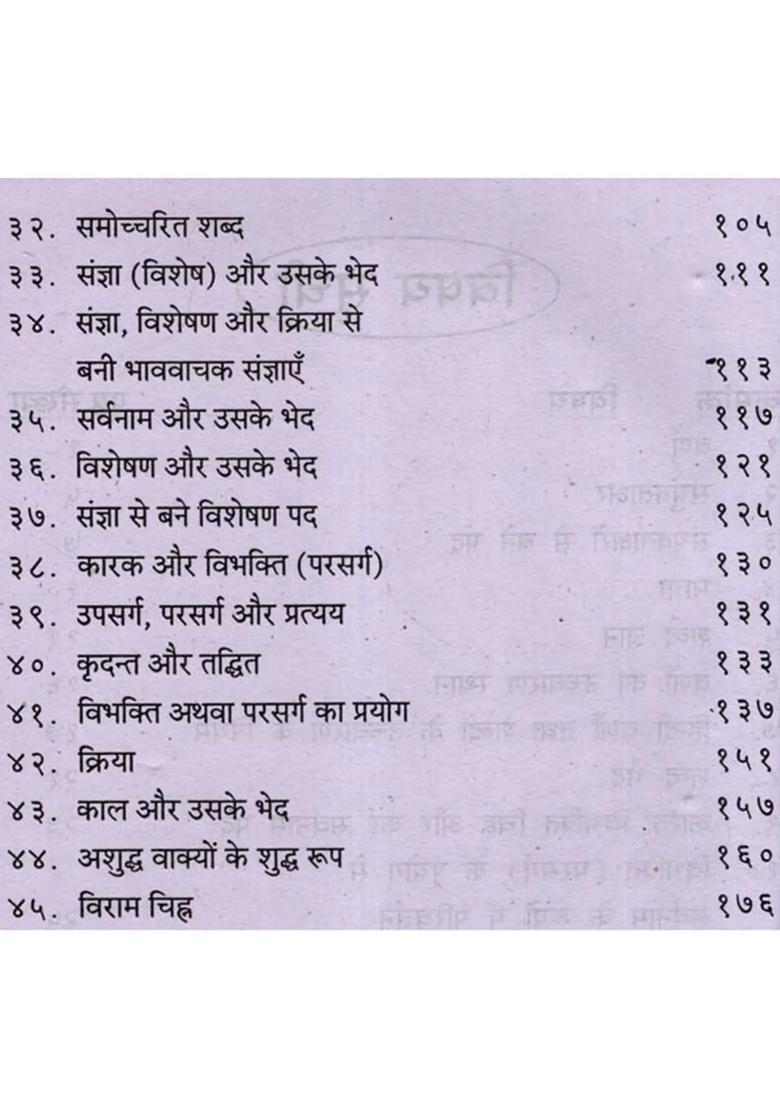 ३२. समोच्चरित शब्द १०५
३३. संज्ञा (विशेष) और उसके भेद १११
३४. संज्ञा, विशेषण और क्रिया से
बनी भाववाचक संज्ञाएँ ११३
३५. सर्वनाम और उसके भेद ११७
३६. विशेषण और उसके भेद १२१
३७. संज्ञा से बने विशेषण पद १२५
३८. कारक और विभक्ति (परसर्ग) १३०
३९. उपसर्ग, परसर्ग और प्रत्यय १३१
४०. कृदन्त और तद्धित १३३
४१. विभक्ति अथवा परसर्ग का प्रयोग १३७
४२. क्रिया १५१
४३. काल और उसके भेद १५७
४४. अशुद्ध वाक्यों के शुद्ध रूप १६०
४५. विराम चिह्न १७६